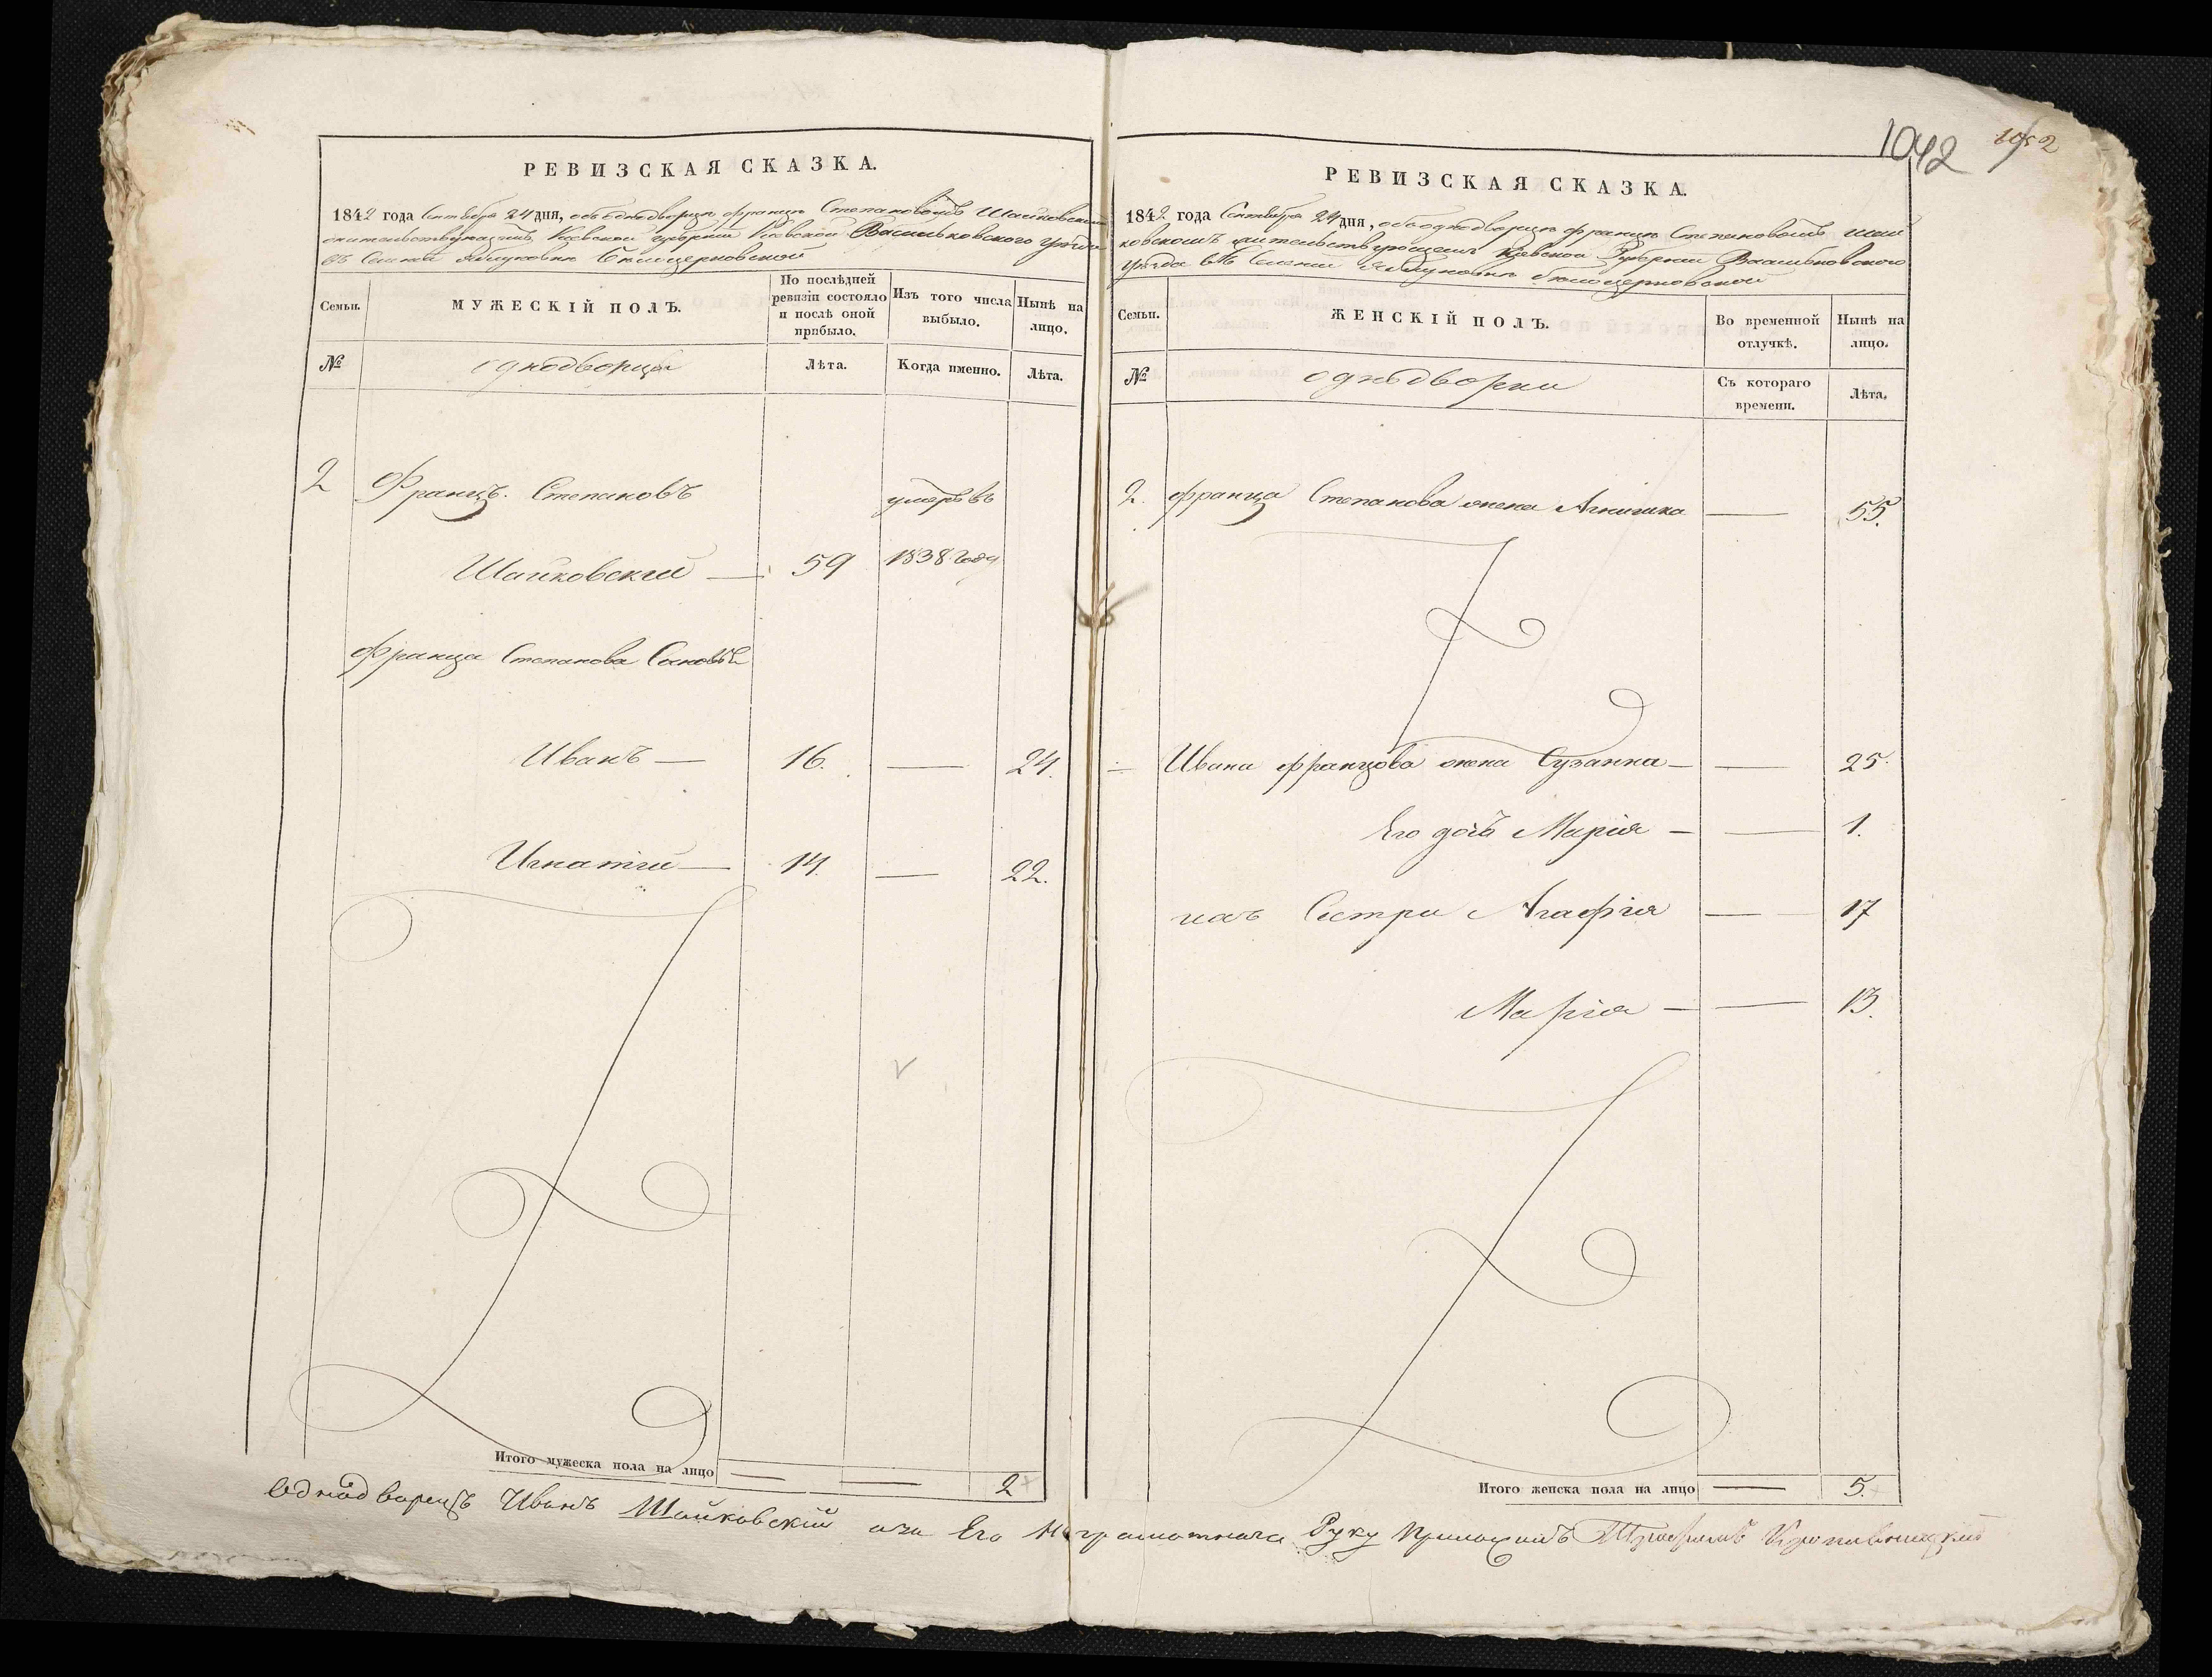 РЕВИЗСКАЯ СКАЗКА.
1842 года Сентября 24 дня, объ однодворцѣ францѣ Степановомъ Шайковскомъ
жительствующимъ Кіевской губерніи Васильковского уѣзда
въ Селеніи Яблуновкѣ Бѣлоцерковской
Семьи.
МУЖЕСКІЙ ПОЛЪ.
По послѣдней ревизіи состояло и послѣ оной прибыло.
Изъ того числа выбыло.
Нынѣ на лицо.
№
однодворцы
Лѣта.
Когда именно.
Лѣта.
2 Францъ Степановъ умеръ въ
Шайковскій — 59 1838 года
Франца Степанова Сыновья
Иванъ — 16. — 24.
Игнатій — 14. — 22.
Итого мужеска пола на лицо — — 2
1042 1052
РЕВИЗСКАЯ СКАЗКА.
1842 года Сентября 24 дня, объ однодворцѣ францѣ Степановомъ Шай
ковскомъ жительствующемъ Кіевской Губерніи Васильковского
уѣзда въ Селеніи Яблуновкѣ бѣлоцерковской
Семьи.
ЖЕНСКІЙ ПОЛЪ.
Во временной отлучкѣ.
Нынѣ на лицо.
№
однодворки
Съ котораго времени.
Лѣта.
2. франца Степанова жена Агнишка — 55.
Ивана францова жена Сузанна — — 25.
Его дочь Марія — — 1.
ихъ Сестры Агафія — 17
Марія — — 13.
Итого женска пола на лицо — 5.
Однадворецъ Иванъ Шайковскій а за Его Неграмотнаго Руку Приложилъ